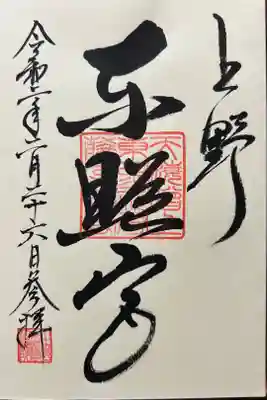 上野
東照宮
令和二年六月二十六日参拝